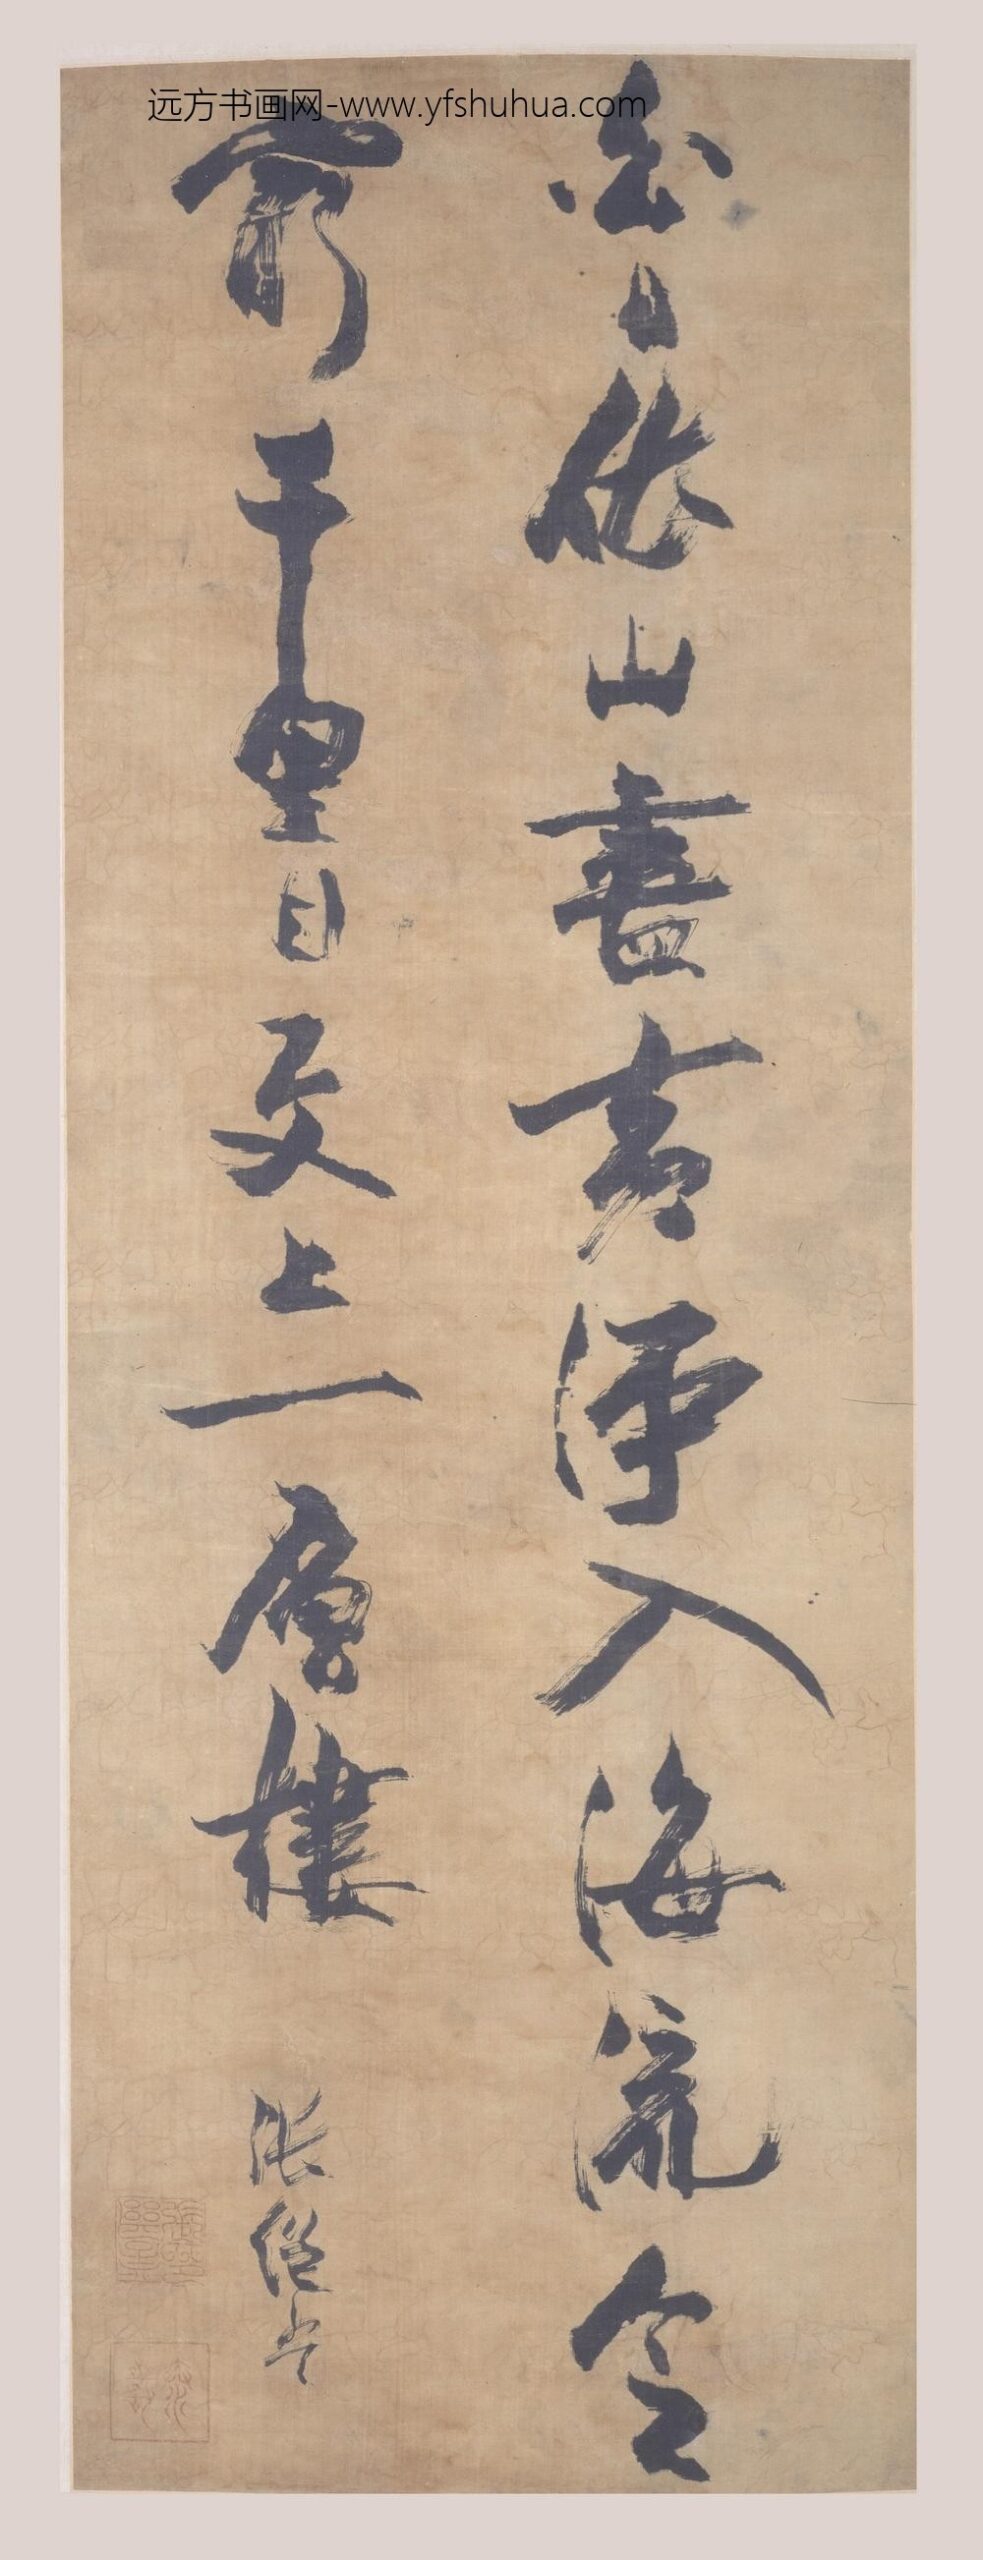 远方书画网-www.yfshuhua.com
白日依山盡黃河入海流
窮千里目更上一層樓
張書